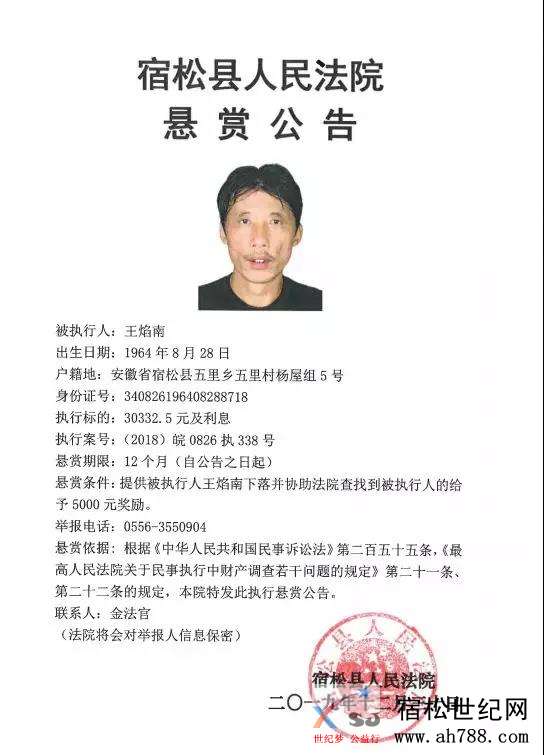 宿松县人民法院
悬赏公告
被执行人：王焰南
出生日期：1964年8月28日
户籍地：安徽省宿松县五里乡五里村杨屋组5号
身份证号：340826196408288718
执行标的：30332.5元及利息
执行案号：（2018）皖0826执338号
悬赏期限：12个月（自公告之日起）
悬赏条件：提供被执行人王焰南下落并协助法院查找到被执行人的给
予5000元奖励。
举报电话：0556-3550904
悬赏依据：根据《中华人民共和国民事诉讼法》第二百五十五条，《最
高人民法院关于民事执行中财产调查若干问题的规定》第二十一条、
第二十二条的规定，本院特发此执行悬赏公告。
联系人：金法官
（法院将会对举报人信息保密）
宿松县人民法院
二〇一九年十二月 日
世纪梦 公益行
宿松世纪网
www.ah788.com